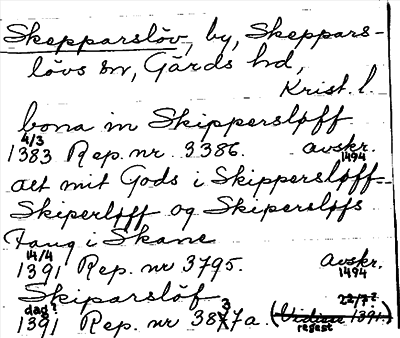 Skepparslöv, by, Skeppars-
lövs sn, Gärds hd,
Krist. l.
bona in Skippersløff
4/3
1383 Rep. nr 3386. avskr.
1494
alt mit Gods i Skippersløff=
Skiperløff og Skipersløfs
Fang i Skane
14/4
1391 Rep. nr 3795. Avskr.
1494
Skiparsløf
dag? 3 22/7?
1391 Rep. nr 38X7a. (Vidisse 1391.)
regest